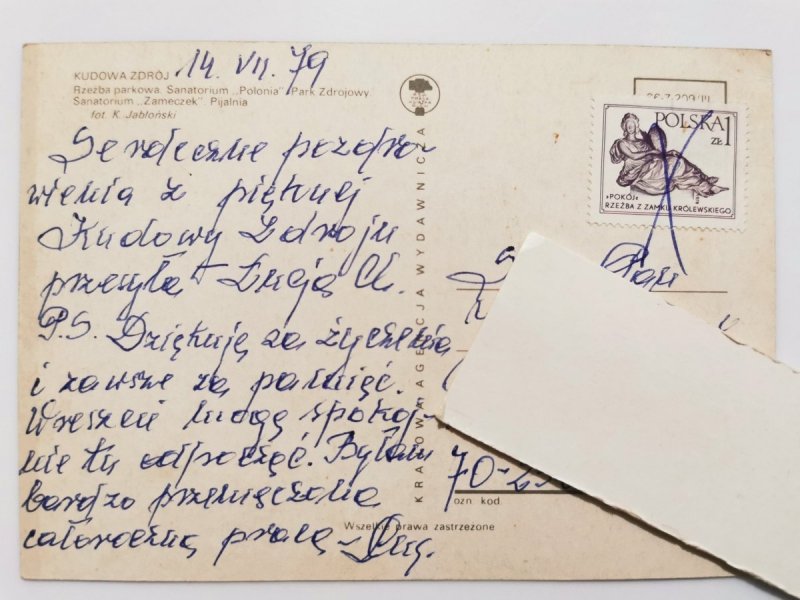 KUDOWA ZDRÓJ
14. VII. 79
Rzeźba parkowa. Sanatorium „Polonia" Park Zdrojowy.
Sanatorium „Zameczek". Pijalnia
fot. K. Jabłoński
Serdeczne pozdro-
wienia z pięknej
Kudowy Zdroju
przesyła
P.S. Dziękuję za życzenia
i zawsze za pamięć.
Wreszcie mogę spokoj-
nie tu odpocząć. Byłam
bardzo przemęczona
całoroczną pracą –
KRAJOWA AGENCJA WYDAWNICZA
POLSKA 1
ZŁ
»POKÓJ«
RZEŹBA Z ZAMKU KRÓLEWSKIEGO
Pani
70-2
ozn. kod.
Wszelkie prawa zastrzeżone